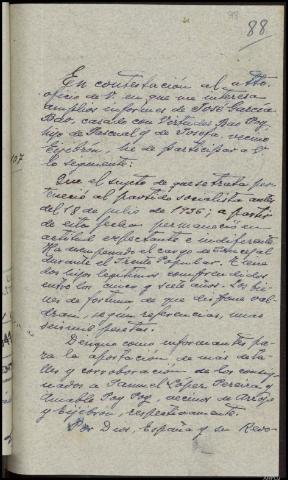 88
En contestación al atto.
oficio de V. en que me interesa
amplios informes de José García
casado con Virtudes Poy,
hijo de Pascual y de Josefa, vecino
he de participar a V.
lo siguiente:
Que el sujeto de que se trata per-
teneció al partido socialista antes
del 18 de julio de 1936; a partir
de esta fecha permaneció en
actitud expectante e indiferente.
Ha desempeñado el cargo de
durante el Frente Popular. Tiene
dos hijos legítimos comprendidos
entre los cinco y siete años. Los bie-
nes de fortuna de que disfruta val-
drán, según referencias, unas
seis mil pesetas.
Designo como informantes pa-
ra la aportación de más deta-
lles y corroboración de los consig-
nados a Manuel López Pereira y
Amable Poy Poy, vecinos de
y respectivamente.
Por Dios, España y su Revo-
107